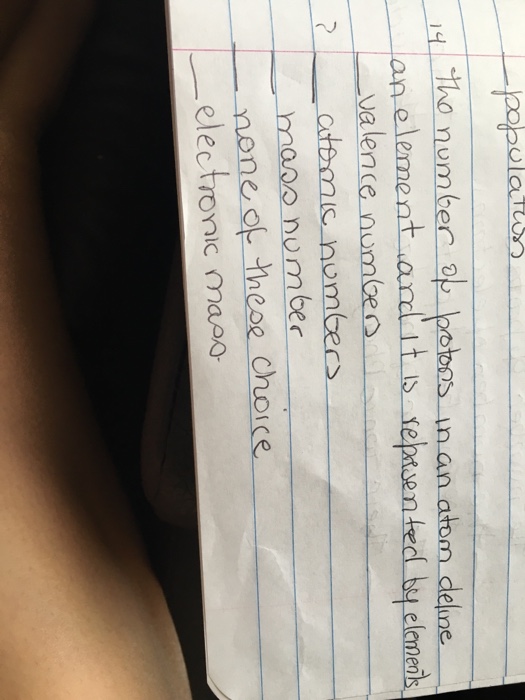 _population
14 The number of protons in an atom define
an element and it is represented by elements
_valence numbers
? _ atomic numbers
_ mass number
_ none of these choice
_ electronic mass